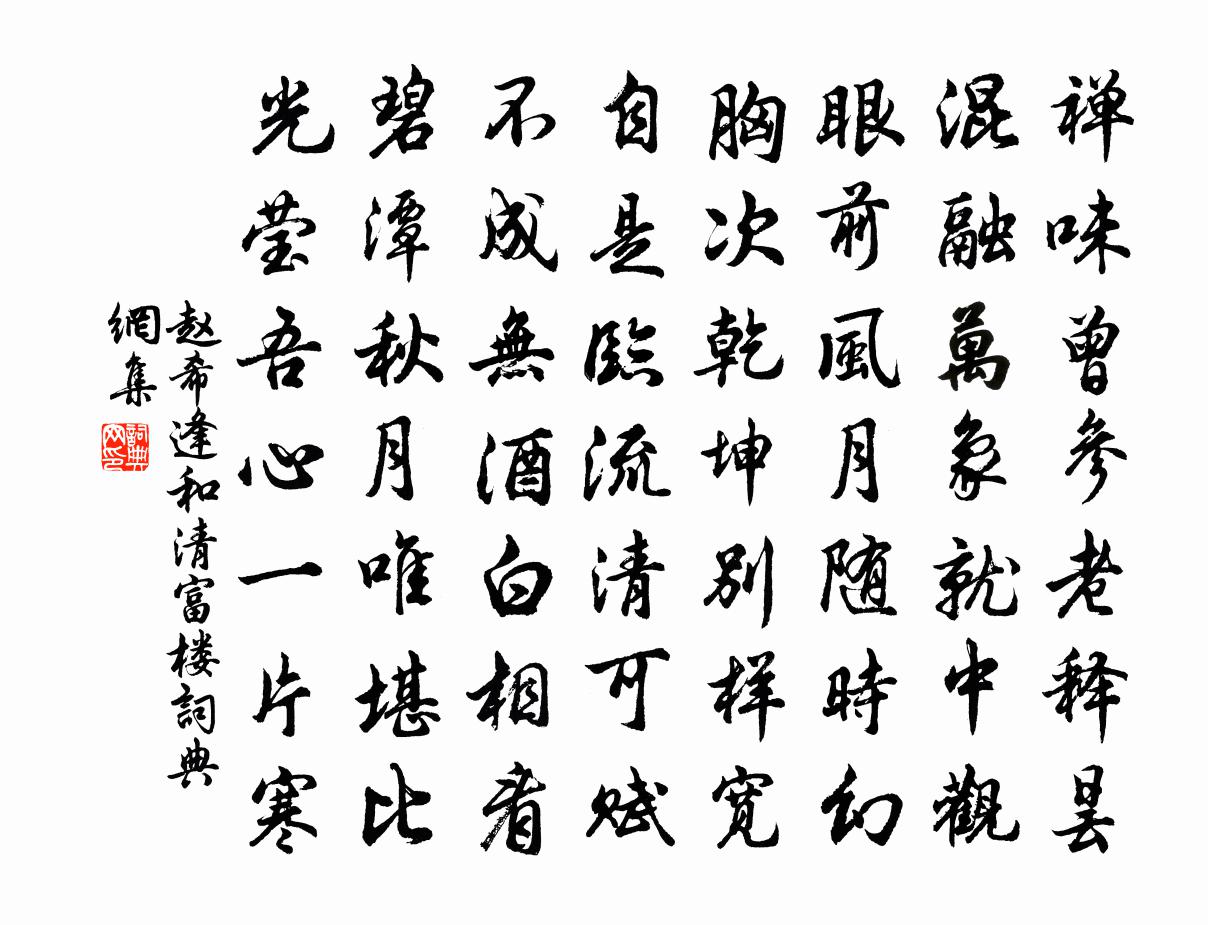 禅味曾参老释昙
混融萬象就中觀
眼前風月随時幻
胸次乾坤别样宽
自是臨流清可赋
不成無酒白相看
碧潭秋月唯堪比
光莹吾心一片寒
赵希逢和清富楼詞典
網集
詞典
网印